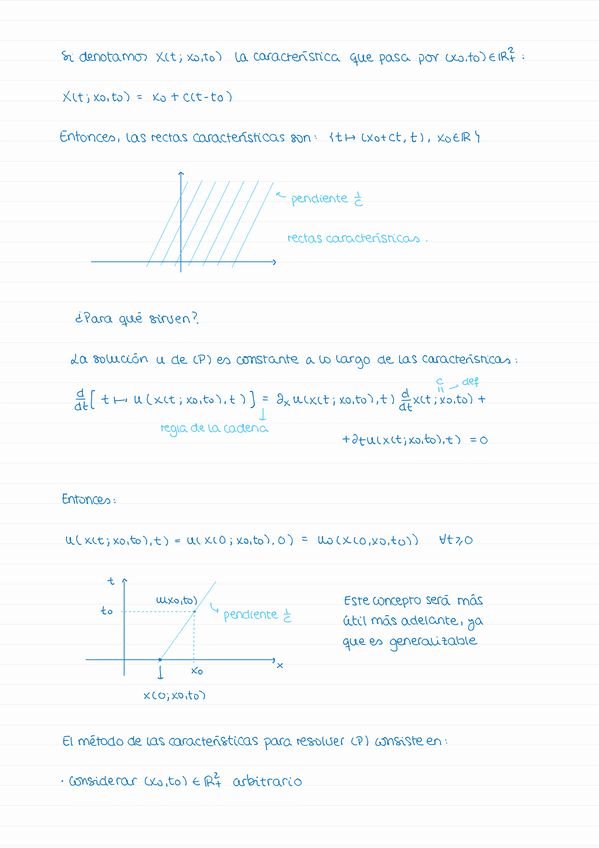 Si denotamos X(t; x₀,t₀) la característica que pasa por (x₀,t₀) ∈ ℝ²₊ :
X(t; x₀,t₀) = x₀ + c(t-t₀)
Entonces, las rectas características son: {t ↦ (x₀+ct, t), x₀∈ℝ}
← pendiente 1/c
rectas características.
¿Para qué sirven?
La solución u de (P) es constante a lo largo de las características:
c
|| — def
d/dt [ t ↦ u(x(t; x₀,t₀), t) ] = ∂ₓu(x(t; x₀,t₀), t) d/dt x(t; x₀,t₀) +
↓
regla de la cadena
+∂ₜu(x(t; x₀,t₀), t) = 0
Entonces:
u(x(t; x₀,t₀), t) = u(x(0; x₀,t₀), 0) = u₀(x(0,x₀,t₀)) ∀t≥0
t
u(x₀,t₀)
t₀
pendiente 1/c
x₀
x
x(0; x₀,t₀)
Este concepto será más
útil más adelante, ya
que es generalizable
El método de las características para resolver (P) consiste en:
· Considerar (x₀,t₀) ∈ ℝ²₊ arbitrario